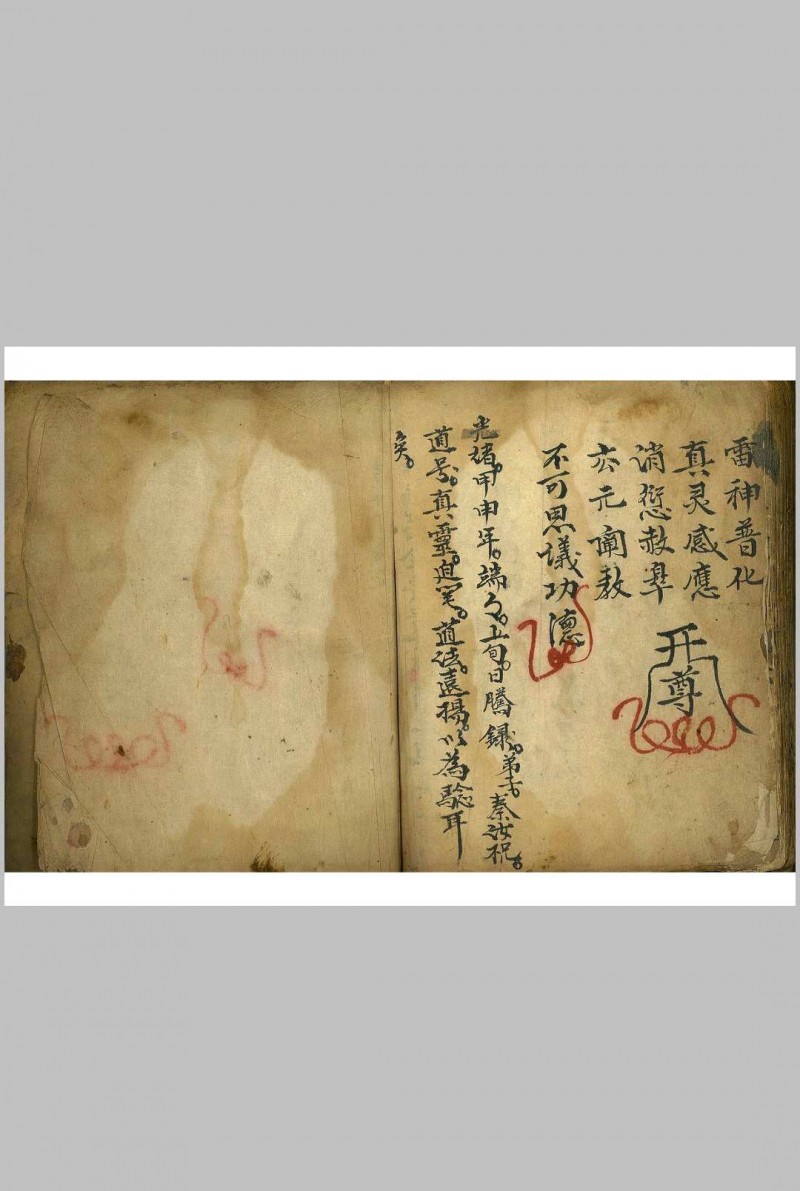 雷神普化
真灵感應
消愆赦辠
六元闡教
开尊
不可思議功德
光緒。甲申年。端月。上旬。日騰録。弟子。秦汝祝。
道号。真靈。迫笔。道法。遠揚。以為騐耳
矣。